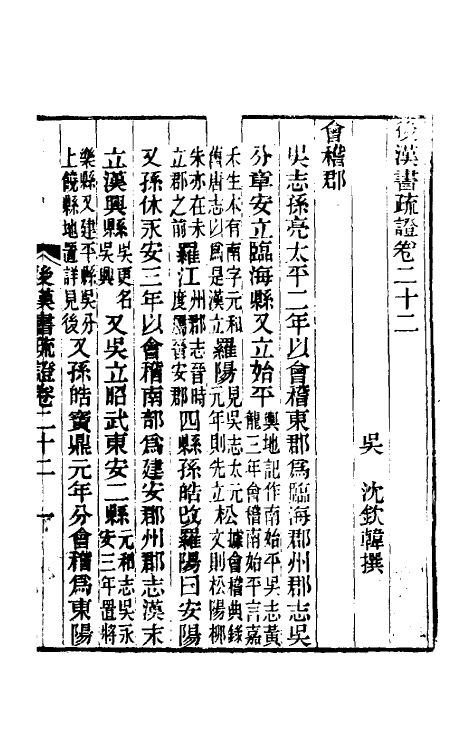 後漢書疏證卷二十二
吳 沈欽韓撰
會稽郡
吳志孫亮太平二年以會稽東郡爲臨海郡州郡志吳
分章安立臨海縣又立始平輿地記作南始平吳志黃龍三年會稽南始平言嘉
禾生本有南字元和舊唐志以爲是漢立羅陽見吳志太元元年則先立松據會稽典錄文則松陽柳
朱亦在未立郡之前羅江州郡志晉時度屬晉安郡四縣孫皓改羅陽曰安陽
又孫休永安三年以會稽南部爲建安郡州郡志漢末
立漢興縣吳更名吳興又吳立昭武東安二縣元和志吳永安三年置將
樂縣又建平縣吳分上饒縣地置詳見後又孫皓寶鼎元年分會稽爲東陽
後漢書疏證卷二十二